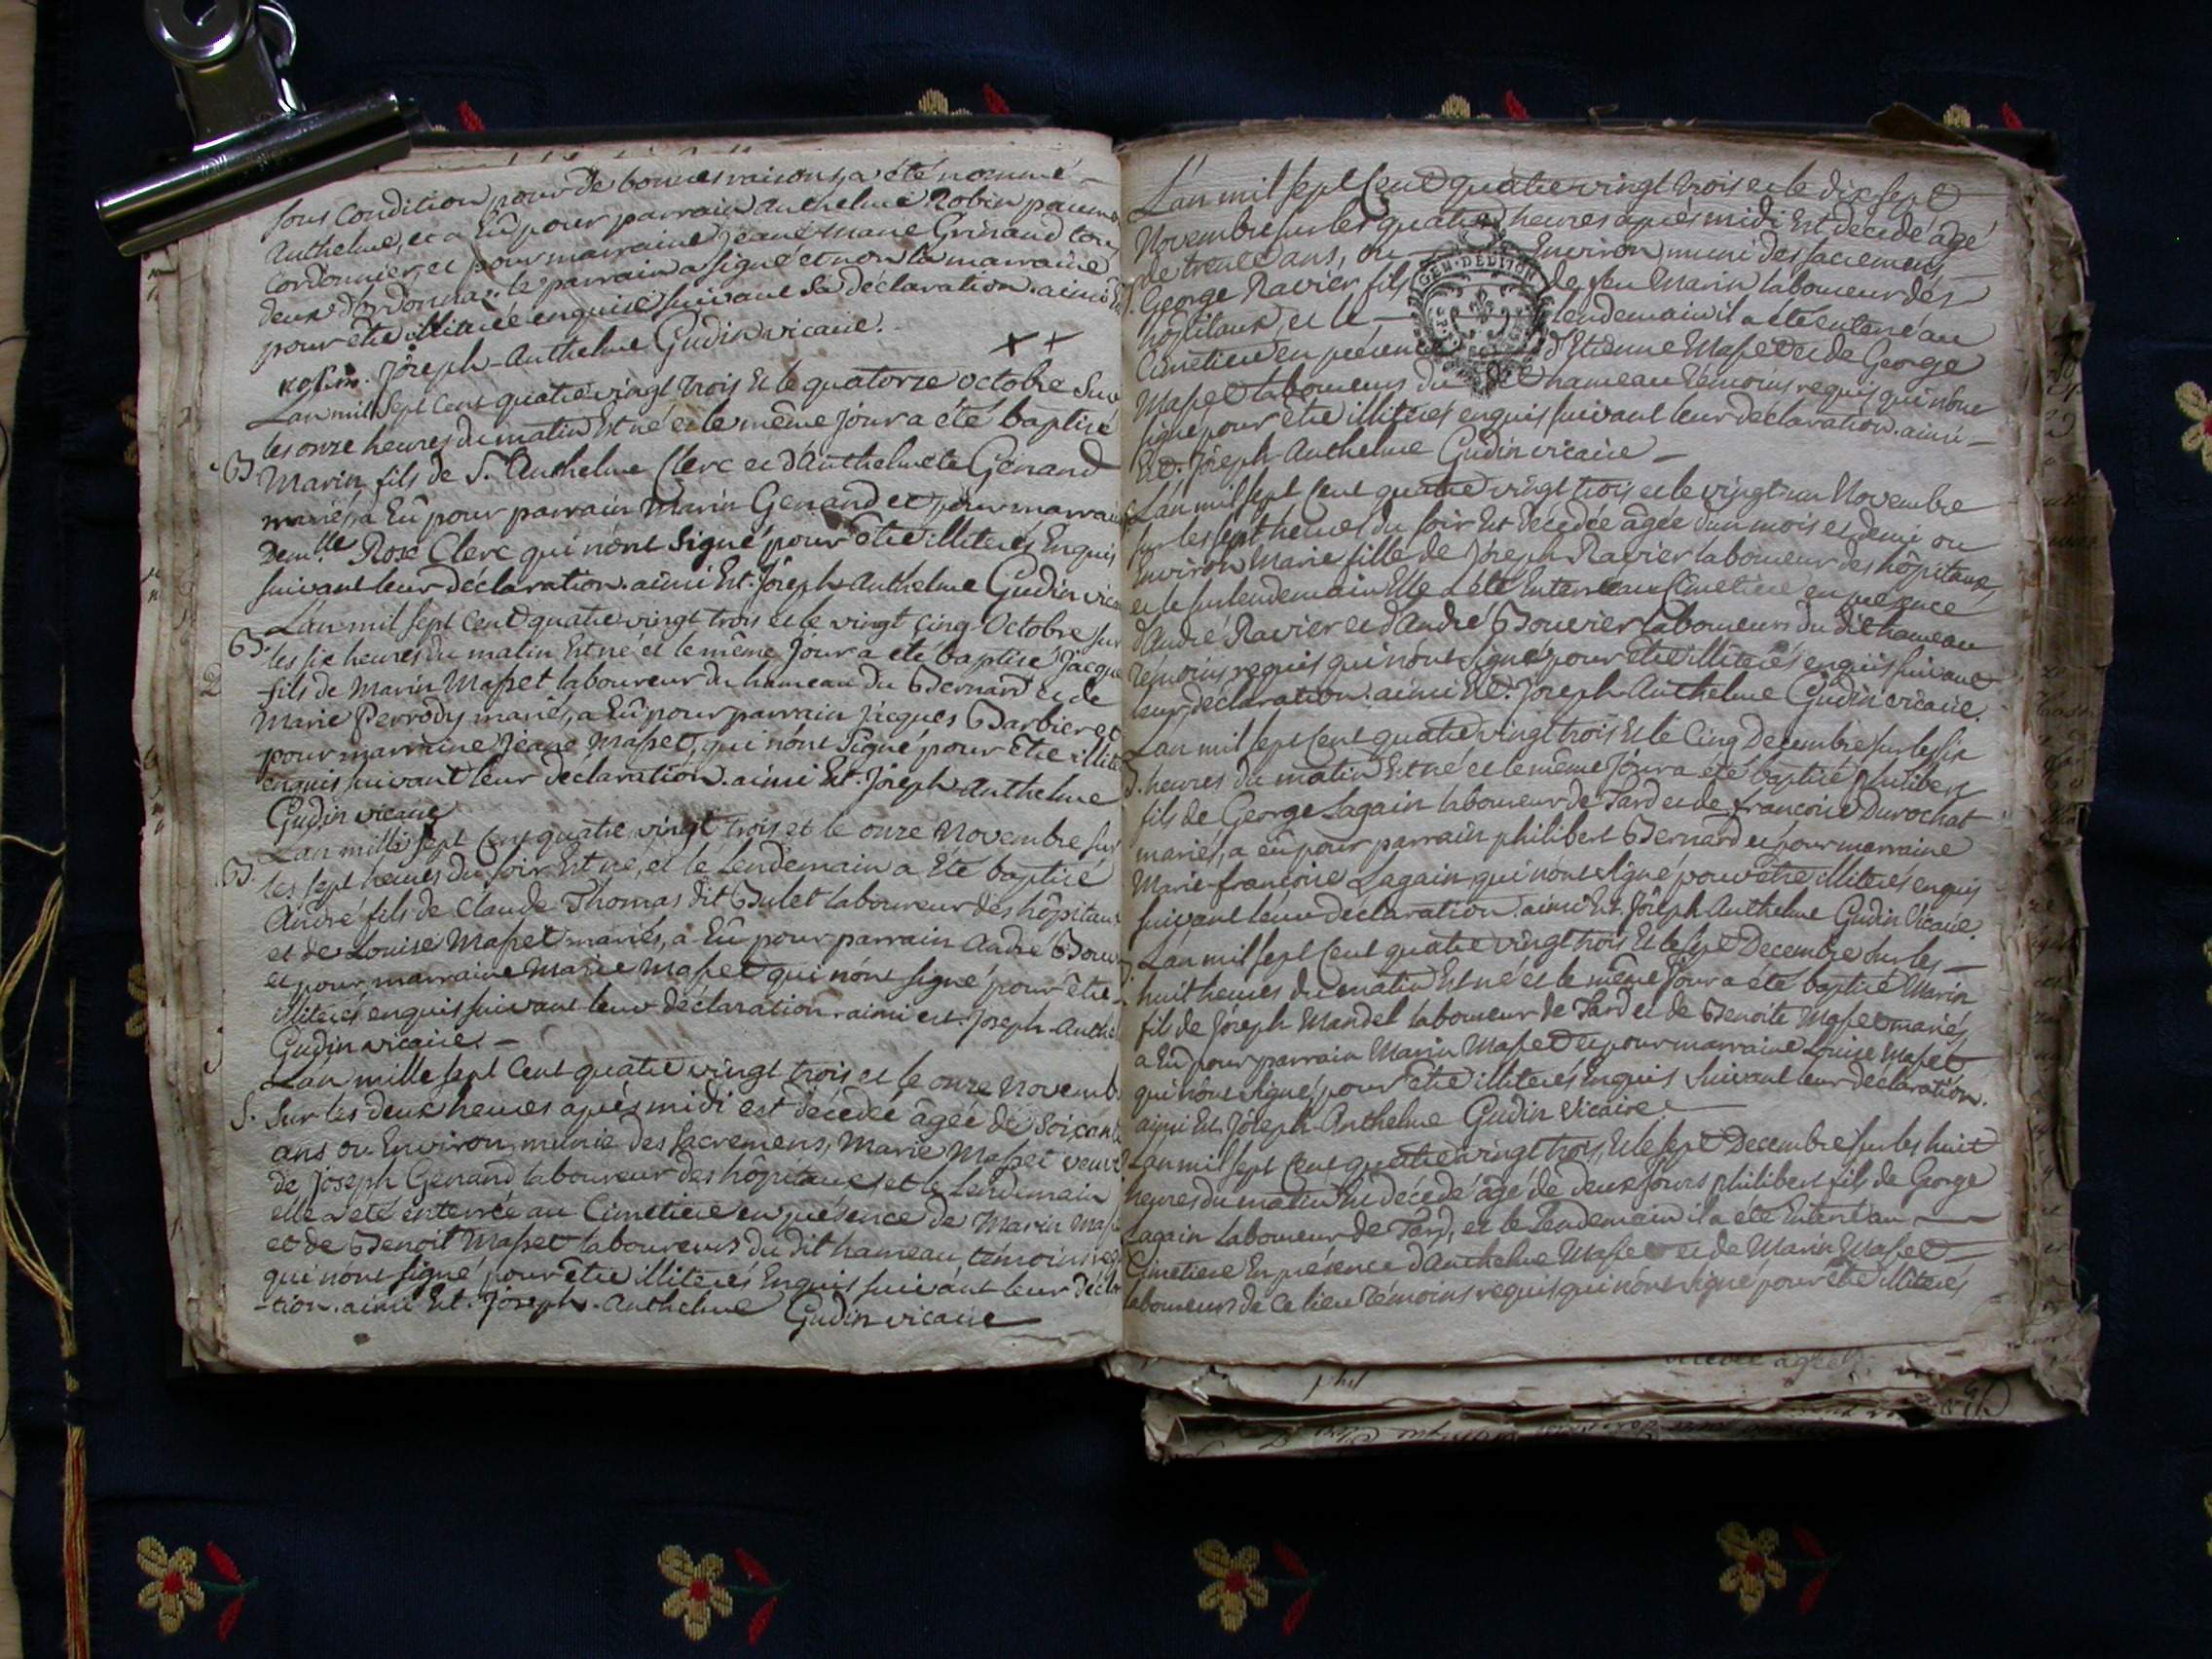 sous Condition pour de bonnes raisons, a été nommé
Anthelme, et a Eû pour parrain Anthelme Robin
Cordonnier et pour marraine jeane Marie Grinand tou
deux d'ordonnas. le parrain a signé et non la marraine
pour être illiterée enquise suivant sa déclaration. ainsi
robin. Joseph-Anthelme Gudin vicaire.
L'an mil Sept Cent quatre vingt trois Et le quatorze octobre Sur
les onze heures du matin Est né et le même Jour a été baptisé
B Marin fils de S. Anthelme Clerc et d'Anthelmete Genand
mariés, a Eû pour parrain Marin Genand et pour marrai
Dem.lle Rose Clerc qui n'ont Signé pour être illiterés Enquis
suivant leur déclaration. ainsi Est. Joseph-Anthelme Gudin vica
L'an mil sept Cent quatre vingt trois et le vingt Cinq Octobre sur
B. les six heures du matin Est né et le même Jour a été baptisé Jacque
fils de Marin Masset laboureur du hameau du Bernard et de
Marie Perrody mariés, a Eû pour parrain Jacques Barbier et
pour marraine Jeane Masset, qui n'ont Signé pour Etre illite
enquis suivant leur déclaration. ainsi Est. Joseph Anthelme
Gudin vicaire
L'an mille sept Cent quatre vingt trois et le onze Novembre sur
B. les sept heures du soir Est né, et le Lendemain a Eté baptisé
André fils de Claude Thomas dit Bulet laboureur des hôpitaux
et de Louise Masset mariés, a Eû pour parrain André Bouv
et pour marraine Marie Masset qui n'ont signé pour être
illiterés enquis suivant leur déclaration. ainsi est. Joseph-Anthe
Gudin vicaire. —
L'an mille sept Cent quatre vingt trois et le onze Novemb
S. Sur les deux heures après midi est décédée âgée de Soixante
ans ou Environ, munie des sacremens, Marie Masset veuve
de Joseph Genand laboureur des hôpitaux, et le lendemain
elle a été enterrée au Cimetiere en présence de Marin Mass
et de Benoit Masset laboureurs du dit hameau, témoins req
qui n'ont signé pour être illiterés Enquis suivant leur décla
-tion. ainsi Est. Joseph-Anthelme Gudin vicaire
L'an mil sept Cent quatre vingt trois et le dix sept
Novembre sur les quatre heures après midi Est décédé âgé
de trente ans, ou Environ, muni des sacremens,
GEN. DE DIJON
George Ravier fils de feu Marin laboureur des
hôpitaux, et le lendemain il a été enterré au
Cimetiere en présence d'Etienne Masset et de George
Masset laboureurs du dit hameau témoins requis qui n'ont
signé pour être illiterés enquis suivant leur déclaration. ainsi —
Est. Joseph-Anthelme Gudin vicaire —
L'an mil sept Cent quatre vingt trois et le vingt un Novembre
sur les sept heures du soir Est décédée âgée d'un mois et demi ou
Environ Marie fille de Joseph Ravier laboureur des hôpitaux,
et le surlendemain Elle a été Enterrée au Cimetiere en presence
d'André Ravier et d'André Bouvier laboureurs du dit hameau
témoins requis qui n'ont signé pour être illiterés enquis suivant
leur déclaration. ainsi Est. Joseph-Anthelme Gudin vicaire.
L'an mil sept Cent quatre vingt trois Et le Cinq Decembre sur les six
B. heures du matin Est né et le même Jour a été baptisé philibert
fils de George Lagain laboureur de Tard et de francoise Durochat
mariés, a eû pour parrain philibert Bernard et pour marraine
Marie-francoise Lagain, qui n'ont signé pour être illiterés enquis
suivant leur déclaration. ainsi Est. Joseph-Anthelme Gudin Vicaire.
L'an mil sept Cent quatre vingt trois Et le sept Decembre sur les —
huit heures du matin Est né et le même Jour a été baptisé Marin
fils de Joseph Mandel laboureur de Tard et de Benoite Masset mariés,
a Eû pour parrain Marin Masset et pour marraine Louise Masset
qui n'ont signé, pour être illiterés Enquis suivant leur déclaration.
ainsi Est. Joseph-Anthelme Gudin Vicaire.
L'an mil sept Cent quatre vingt trois, Et le sept Decembre sur les huit
heures du matin Est décédé âgé de deux Jours philibert fils de George
Lagain laboureur de Tard, et le Lendemain il a été Enterré au —
Cimetiere En présence d'Anthelme Masset et de Marin Masset
laboureurs de Ce lieu témoins requis qui n'ont signé pour être illiterés